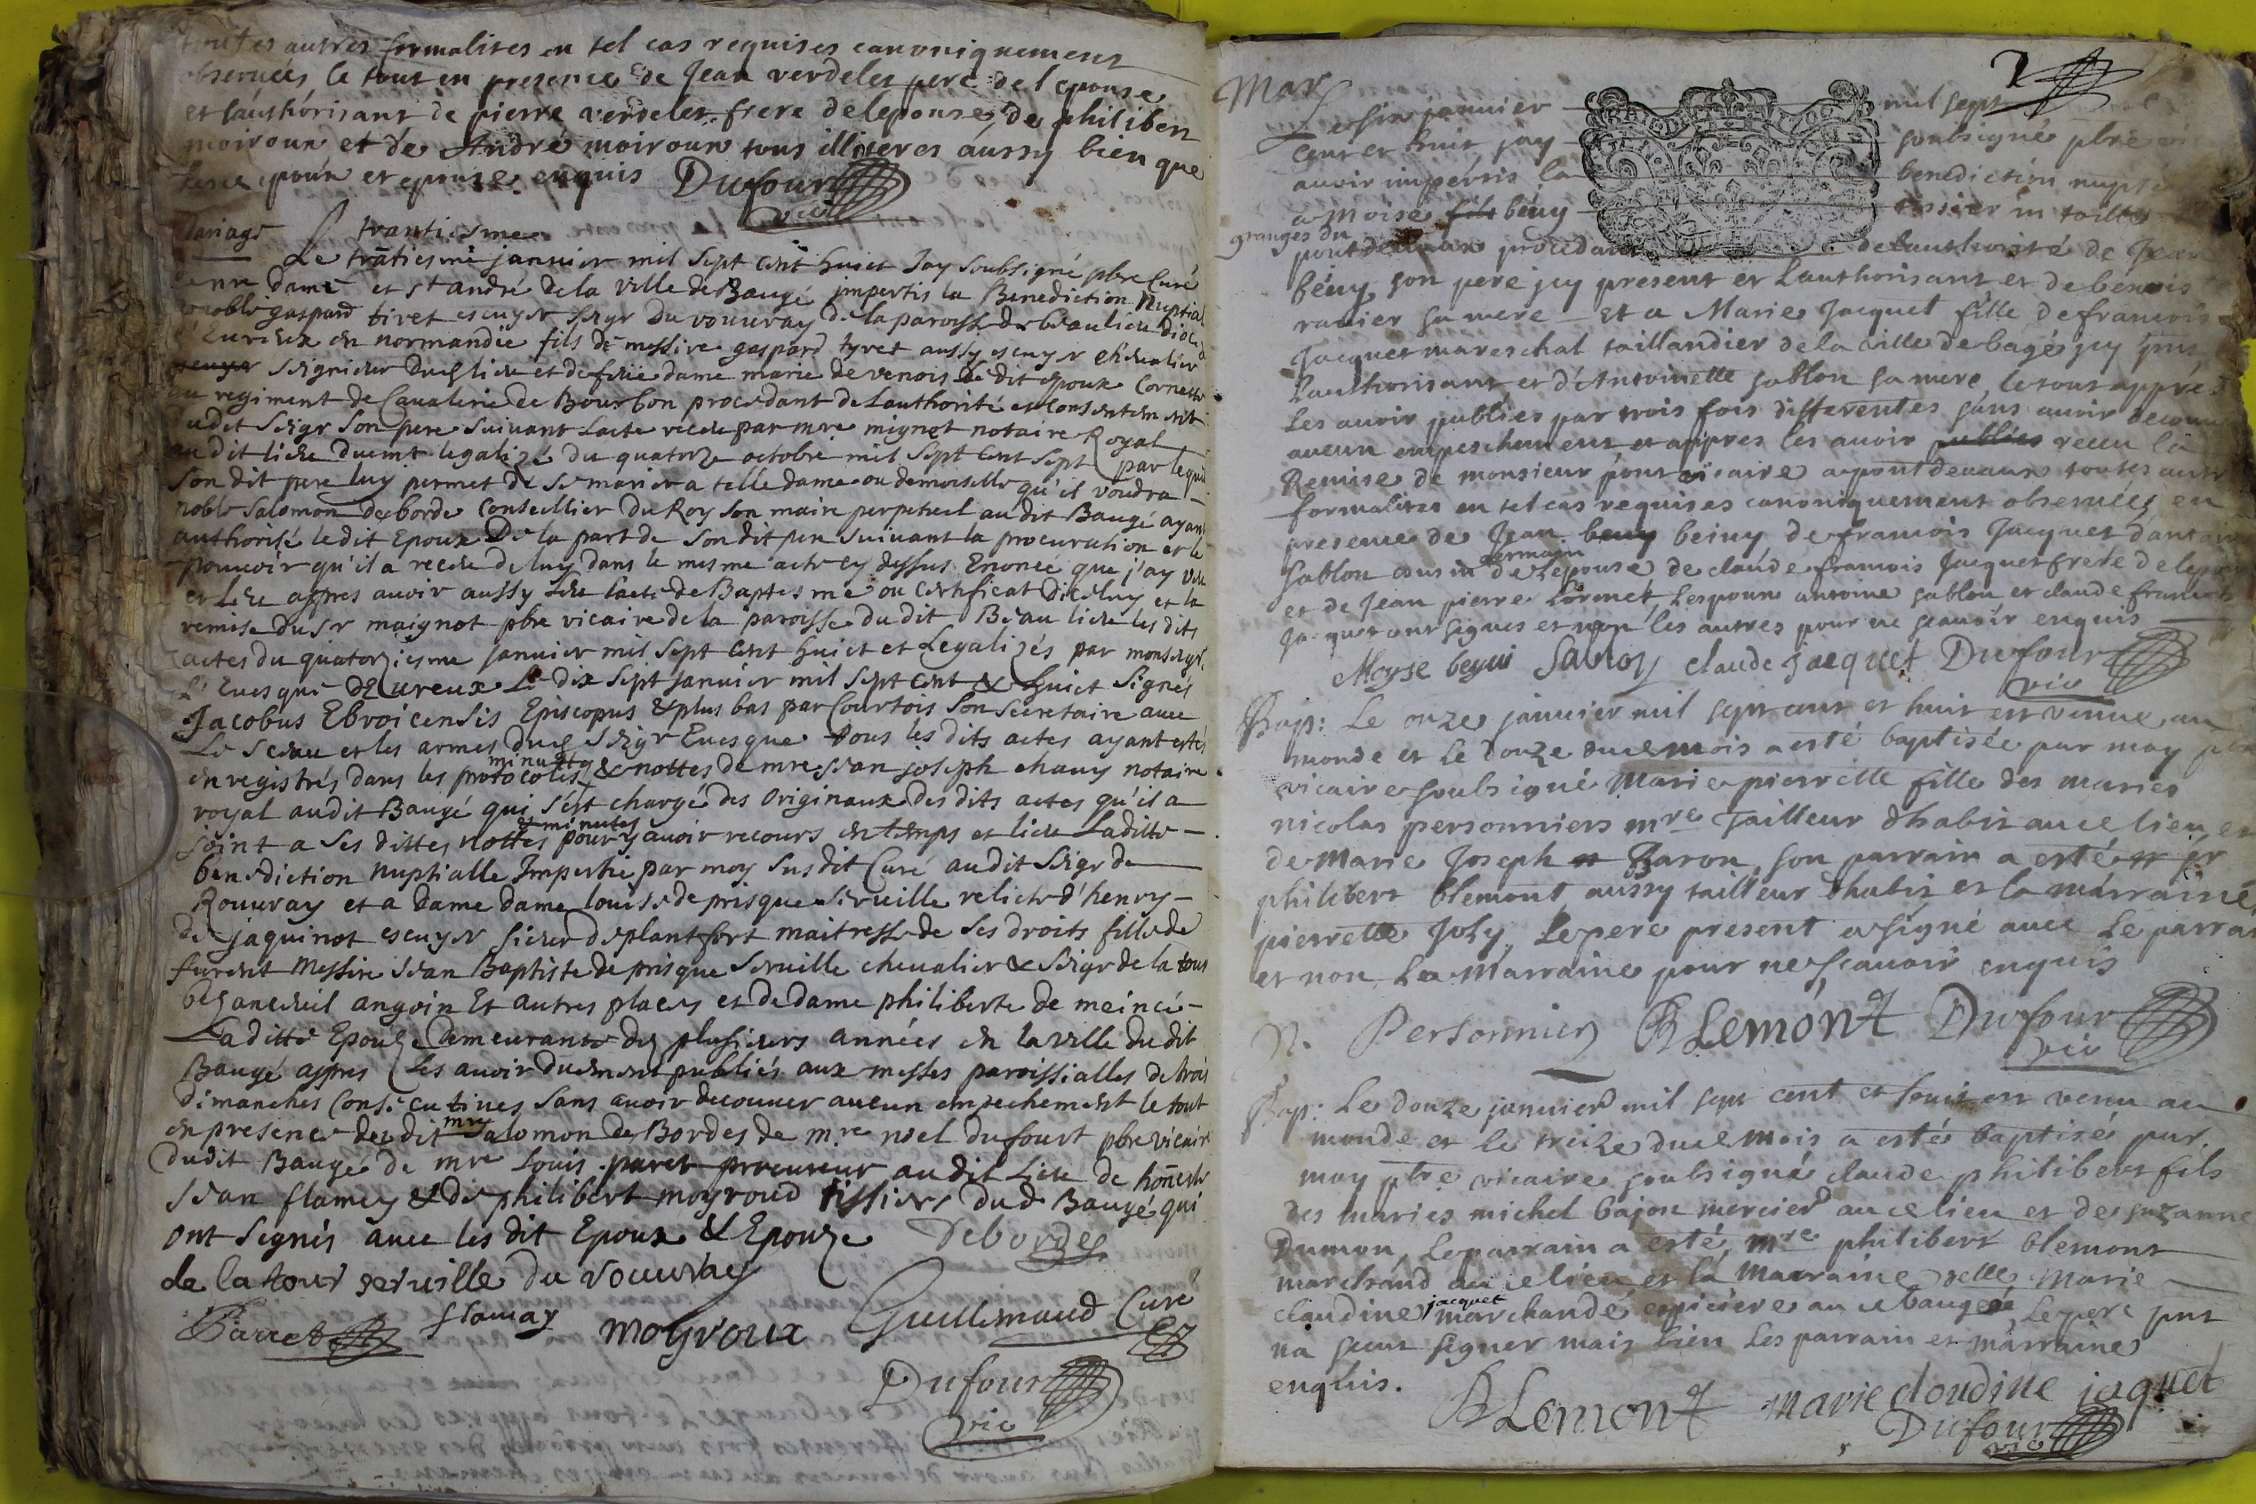 toutes autres formalites en tel cas requises canoniquement
observées le tout en presence de Jean verdelet pere de l'epouse
et l'authorisant de pierre verdelet frere de lepouse, de philibert
moiroux et de André moiroux tous illiteres aussy bien que
epoux et epouse enquis Dufour
vic
Mariage Le trantiesme
Le trãtiesme januier mil sept cent huict Jay soubsigné pbre Curé
de nre dame et st andré de la ville de Baugé jmpertis la Benediction Nuptial
noble gaspard tivet escuyer seigr du rouuray de la paroisse de beaulieu dioc
d'Eureux en normandie fils de messire gaspard tyvet aussy escuyer cheualier
seigneur dud lieu et de feüe dame marie de venois le dit Epoux Cornette
au regiment de Caualerie de Bourbon procedant de Lauthorité et Consentement
dudit seigr son pere suiuant Lacte receu par mre meignot notaire Royal
au dit lieu duemt legalizé du quatorze octobre mil sept cent sept par lequel
son dit pere luy permet de se marier a telle dame ou demoiselle qu'il voudra
noble Salomon desbordes Conseillier du Roy son maire perpetuel au dit Baugé ayant
authorisé le dit Epoux De la part de son dit pere suiuant la procuration et le
pouuoir qu'il a receu de luy dans le mesme acte cy dessus Enoncé que j'ay veu
et Leu appres auoir aussy Leu l'acte de Baptesme ou Certificat diceluy et la
remise du sr maignot pbre vicaire de la paroisse du dit Beaulieu les dits
actes du quatorziesme januier mil sept cent huict et Legalizés par monseigr
L'Euesque dEureux Le dix sept januier mil sept cent & huict signés
Jacobus Ebroicensis Episcopus & plus bas par Courtois son secretaire auec
Le sceau et les armes dud seigr Euesque tous les dits actes ayant estés
minuttes
enregistrés dans les protocoles & nottes de mre jean joseph chauy notaire
royal audit Baugé qui s'est chargé des Originaux des dits actes qu'il a
& minutes
joint a ses dittes nottes pour y auoir recours en temps et lieu Laditte
benediction nuptialle Impertie par moy susdit Curé audit seigr de
Rouuray et a Dame dame louise de prisque seruille relicte d'henry
de jaquinot escuyer sieur de plantfort maitresse de ses droits fille de
furent Messire Jean Baptiste de prisque seruille cheualier & seigr de la tour
bezaneuil angoin Et autres places et de dame philiberte de meincé
Laditte Epouze demeurante dez plusieurs années en la ville dudit
Baugé appres les auoir duement publiés aux messes paroissialles de trois
dimanches Consecutiues sans auoir decouuer aucun empechement le tout
mre
en presence dudit Salomon des Bordes de mre noel dufourt pbre vicaire
dudit Baugé de mre Louis paret procureur audit Lieu de honneste
Jean flamey & de philibert moyroud tissiers dud Baugé qui
ont signés auec les dit Epoux & Epouze Debordes
de la tour seruille du rouuray
Barret flamay moyroux Guillemaud Curé
Dufour
vic
2
Mar
Le six januier mil sept
cent et huit jay soubsigné pbre
auoir impertis la benediction nuptia
a Moise fils béuy tissier en toille
granges du
pont de uaux procedant de lauthorité de Jean
béuy son pere jcy present et Lauthorisant et de benois
rauier sa mere et a Marie Jacquet fille de francois
Jacquet mareschal taillandier de la ville de bagé jcy pnt
Lauthorisant et d'Antoinette sablon sa mere le tout appres
Les auoir publiés par trois fois differentes sans auoir decouu
aucun empeschement et appres les auoir publiés receu la
Remise de monsieur pont vicaire a pont de uaux toutes autr
formalites en tel cas requises canoniquement obseruées en
presence de Jean beuy beiny de francois Jacquet d'antoin
germain
Sablon cousin de lepouse de claude francois Jacquet frere de lepou
et de Jean pierre Lormet Lespoux antoine sablon et claude francois
Jacquet ont signes et non les autres pour ne scauoir enquis
Moyse beyui Sablon claude jacquet Dufour
vic
Bap: Le onze januier mil sept cent et huit est venue au
monde et Le douze du e mois a esté baptisée par moy pbr
vicaire soubsigné Marie pierrette fille des maries
nicolas personniers mre Tailleur dhabit au ce lieu et
de Marie Joseph Baron, son parrain a esté sr
philibert blemont aussy tailleur dhabit et la marraine
pierrette Joly Le pere present a signé auec Le parra
et non La Marraine pour ne scauoir enquis
N. Personnier Blemont Dufour
vic
Bap: Le douze januier mil sept cent et huit est venu au
monde et le treize du e mois a esté baptisé par
moy pbre vicaire soubsigné claude philibert fils
des maries michel bajon mercier au ce lieu et de suzanne
Dumon, Le parrain a esté mre philibert blemont
marchand au ce lieu et la Marraine delle Marie
jacquet
claudine marchande epiciere au ce baugé Le pere pnt
na sceut signer mais bien Les parrain et marraine
enquis.
Blemont marie cloudine jaquet
Dufour
vic